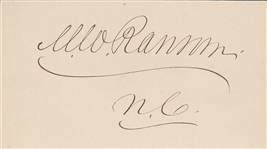 M.W. Ransom.
N.C.